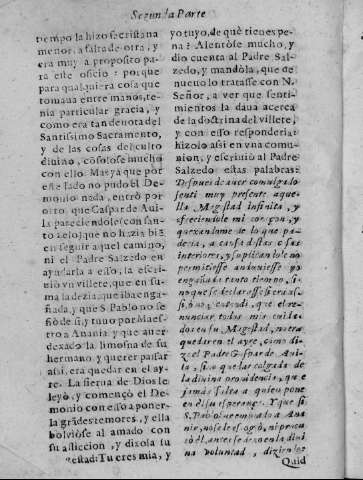 Segunda Parte
tiempo la hizo sacristana
menor, a falta de otra, y
era muy a proposito pa-
ra este oficio: porque
para qualquiera cosa que
tomaua entre manos, te-
nia particular gracia, y
como era tan deuota del
Santissimo Sacramento,
y de las cosas del culto
diuino, cósolose mucho
con ello. Mas ya que por
este lado no pudo el De-
monio nada, entrò por
otro que Gaspar de Aui-
la pareciendole con san-
to zelo, que no hazia bié
en seguir aquel camino,
ni el Padre Salzedo en
ayudarla a ello, la escri-
uio vn villete, que en su-
ma la dezia, que iba enga-
ñada, y que S. Pablo no se
fiò de si, y tuuo por Maes-
tro a Anania: y que auer
dexado la limosna de su
hermano y querer passar
assi, era quedar en el ay-
re. La sierua de Dios le
leyò, y començò el De-
monio con esso a poner-
la grãdes temores, y ella
boluiose al amado con
su afliccion, y dixola su
Magestad: Tu eres mia, y
yo tuyo, de què tienes pe-
na? Alentòse mucho, y
dio cuenta al Padre Sal-
zedo, y mandòla, que de
nueuo lo tratasse con N.
Señor, a ver que senti-
mientos la daua acerca
de la doctrina del villete,
y con esso responderia:
hizolo assi en vna comu-
nion, y escriuiò al Padre
Salzedo estas palabras:
Despues de auer comulgado
senti muy presente aque-
lla Magestad infinita, y
ofreciendole mi coraçon, y
quexandome de lo que pa-
decia, a causa destas cosas
interiores, y suplicandole no
permitiesse anduuiesse yo
engañada tanto tiempo, si-
no que se declarasse si era assi,
si, ò no; entendi, que el re-
nunciar todos mis cuida-
dos en su Magestad, no era
quedar en el ayre, como di-
ze el Padre Gaspar de Aui-
la, sino que las colgada de
la diuina prouidencia, que
jamàs falta a quien pone
en el su esperança. Y que si
S. Pablo fue embiado a Ana-
nia,
ziò èl, antes se dexò en la diui
na voluntad, diziendo:
Quid